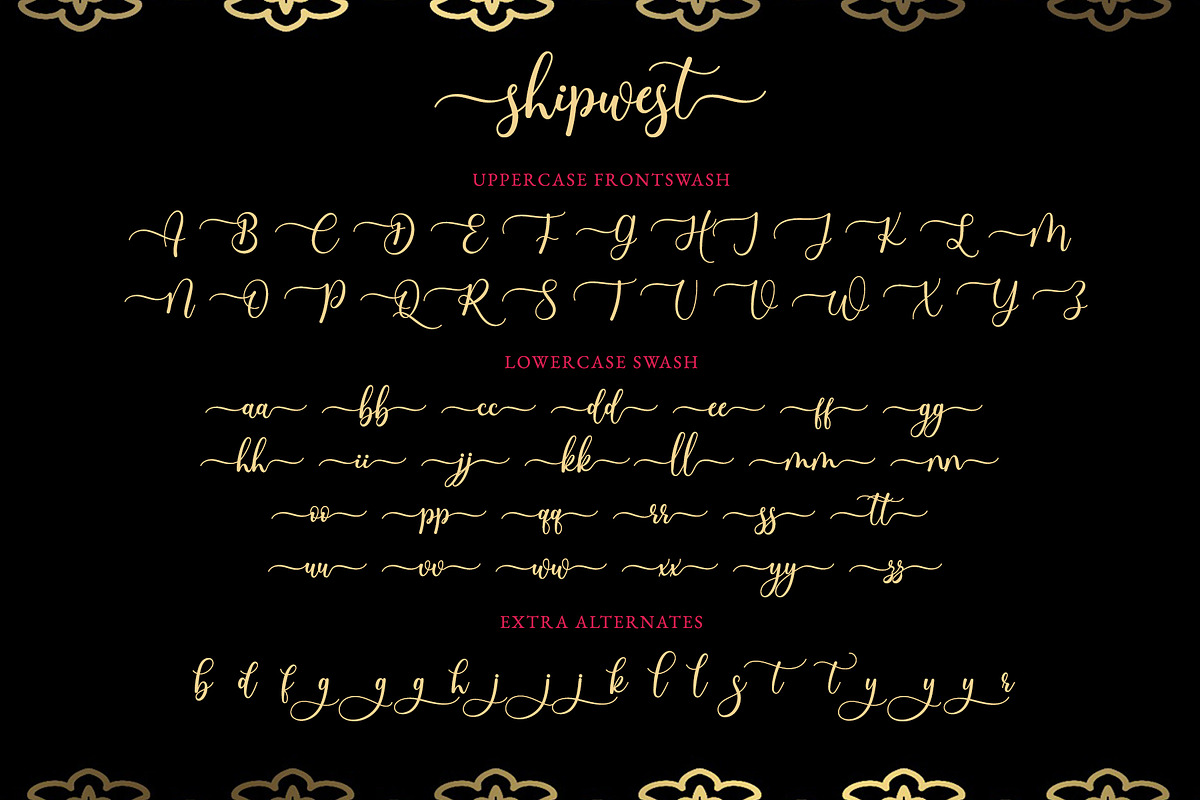 shipwest
UPPERCASE FRONTSWASH
A B C D E F G H I J K L M
N O P Q R S T U V W X Y Z
LOWERCASE SWASH
aa bb cc dd ee ff gg
hh ii jj kk ll mm nn
oo pp qq rr ss tt
uu vv ww xx yy zz
EXTRA ALTERNATES
b d f g g g h j j j k l l s t t y y y r